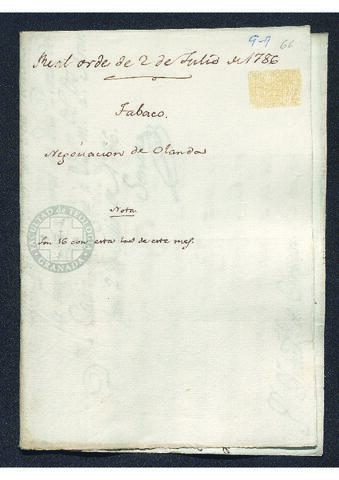 9-9 66
Real orde de 2 de Julio de 1786
Tabaco.
Negociacion de Olanda
Nota
Son 16 con esta las de este mes.
FACULTAD DE TEOLOGIA
GRANADA